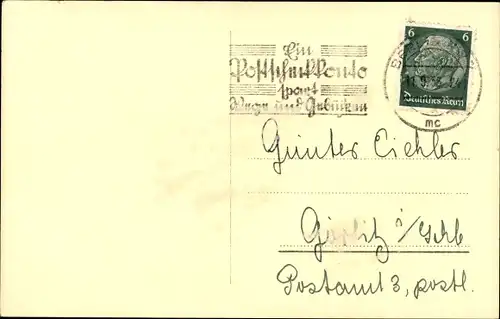 Ein
Postscheckkonto
spart
Wege und Gebühren
6 6
Deutsches Reich
mc
Günter Eichler
Görlitz i/Schl
Postamt 3, postl.